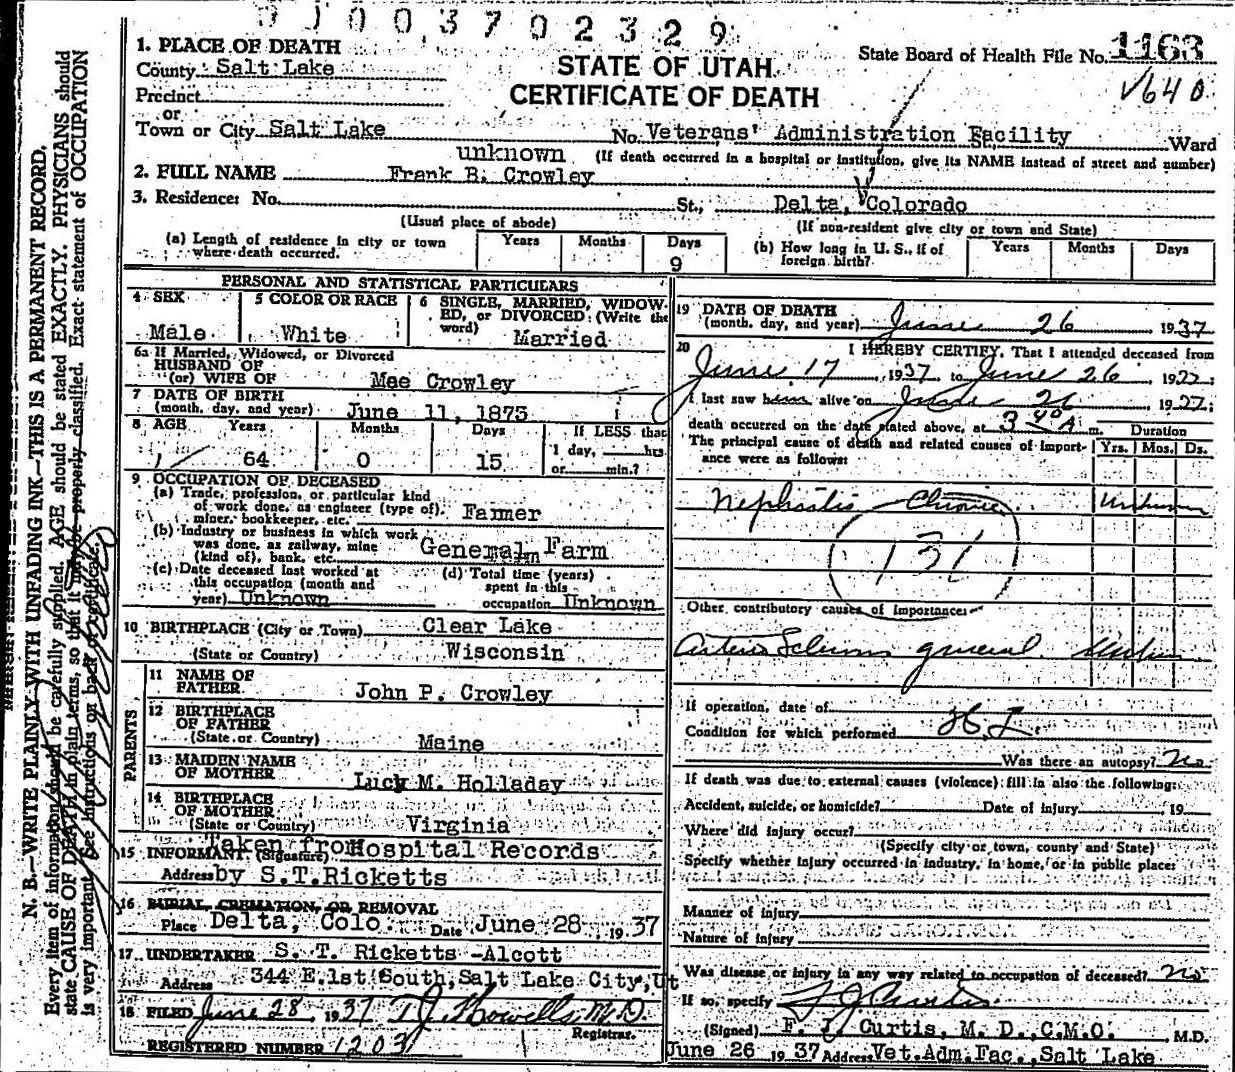 0 J 0 0 3 7 0 2 3 2 9
1. PLACE OF DEATH
County Salt Lake
Precinct
or
Town or City Salt Lake
STATE OF UTAH
CERTIFICATE OF DEATH
State Board of Health File No. 1163
√640
No. Veterans' Administration Facility St., Ward
unknown (If death occurred in a hospital or institution, give its NAME instead of street and number)
2. FULL NAME Frank B. Crowley
3. Residence: No. St., Delta, Colorado
(Usual place of abode) (If non-resident give city or town and State)
(a) Length of residence in city or town where death occurred. Years Months Days 9
(b) How long in U. S., if of foreign birth? Years Months Days
PERSONAL AND STATISTICAL PARTICULARS
4 SEX Male
5 COLOR OR RACE White
6 SINGLE, MARRIED, WIDOWED, or DIVORCED (Write the word) Married
6a If Married, Widowed, or Divorced
HUSBAND OF
(or) WIFE OF Mae Crowley
7 DATE OF BIRTH
(month, day, and year) June 11, 1873
8 AGE Years 64 Months 0 Days 15
If LESS than 1 day, hrs or min.?
9 OCCUPATION OF DECEASED
(a) Trade, profession, or particular kind
of work done, as engineer (type of),
miner, bookkeeper, etc. Farmer
(b) Industry or business in which work
was done, as railway, mine
(kind of), bank, etc. General Farm
(c) Date deceased last worked at
this occupation (month and
year) Unknown
(d) Total time (years)
spent in this
occupation Unknown
10 BIRTHPLACE (City or Town) Clear Lake
(State or Country) Wisconsin
PARENTS
11 NAME OF
FATHER John P. Crowley
12 BIRTHPLACE
OF FATHER
(State or Country) Maine
13 MAIDEN NAME
OF MOTHER Lucy M. Holladay
14 BIRTHPLACE
OF MOTHER
(State or Country) Virginia
Taken from
15 INFORMANT (Signature) Hospital Records
Address by S.T.Ricketts
16 BURIAL, CREMATION, OR REMOVAL
Place Delta, Colo. Date June 28, 1937
17 UNDERTAKER S. T. Ricketts -Alcott
Address 344 E.1st South,Salt Lake City,Ut
18 FILED June 28, 1937 T. J. Howells, M.D.
Registrar.
REGISTERED NUMBER 1203
19 DATE OF DEATH
(month, day, and year) June 26 1937
20 I HEREBY CERTIFY, That I attended deceased from
June 17, 1937 to June 26, 1937;
I last saw him alive on June 26 1937;
death occurred on the date stated above, at 3 40 A m. Duration
The principal cause of death and related causes of importance were as follows: Yrs. Mos. Ds.
Nephritis Chronic Unknown
131
Other contributory causes of importance:
Arterio Sclerosis general Unknown
If operation, date of
Condition for which performed
Was there an autopsy? No
If death was due to external causes (violence) fill in also the following:
Accident, suicide, or homicide? Date of injury 19
Where did injury occur?
(Specify city or town, county and State)
Specify whether injury occurred in industry, in home, or in public place:
Manner of injury
Nature of injury
Was disease or injury in any way related to occupation of deceased? No
If so, specify F J Curtis
(Signed) F. J. Curtis, M. D., C.M.O. M.D.
June 26 1937 Address Vet.Adm.Fac., Salt Lake
N. B.—WRITE PLAINLY WITH UNFADING INK—THIS IS A PERMANENT RECORD.
Every item of information should be carefully supplied. AGE should be stated EXACTLY. PHYSICIANS should
state CAUSE OF DEATH in plain terms, so that it may be properly classified. Exact statement of OCCUPATION
is very important. See instructions on back of certificate.